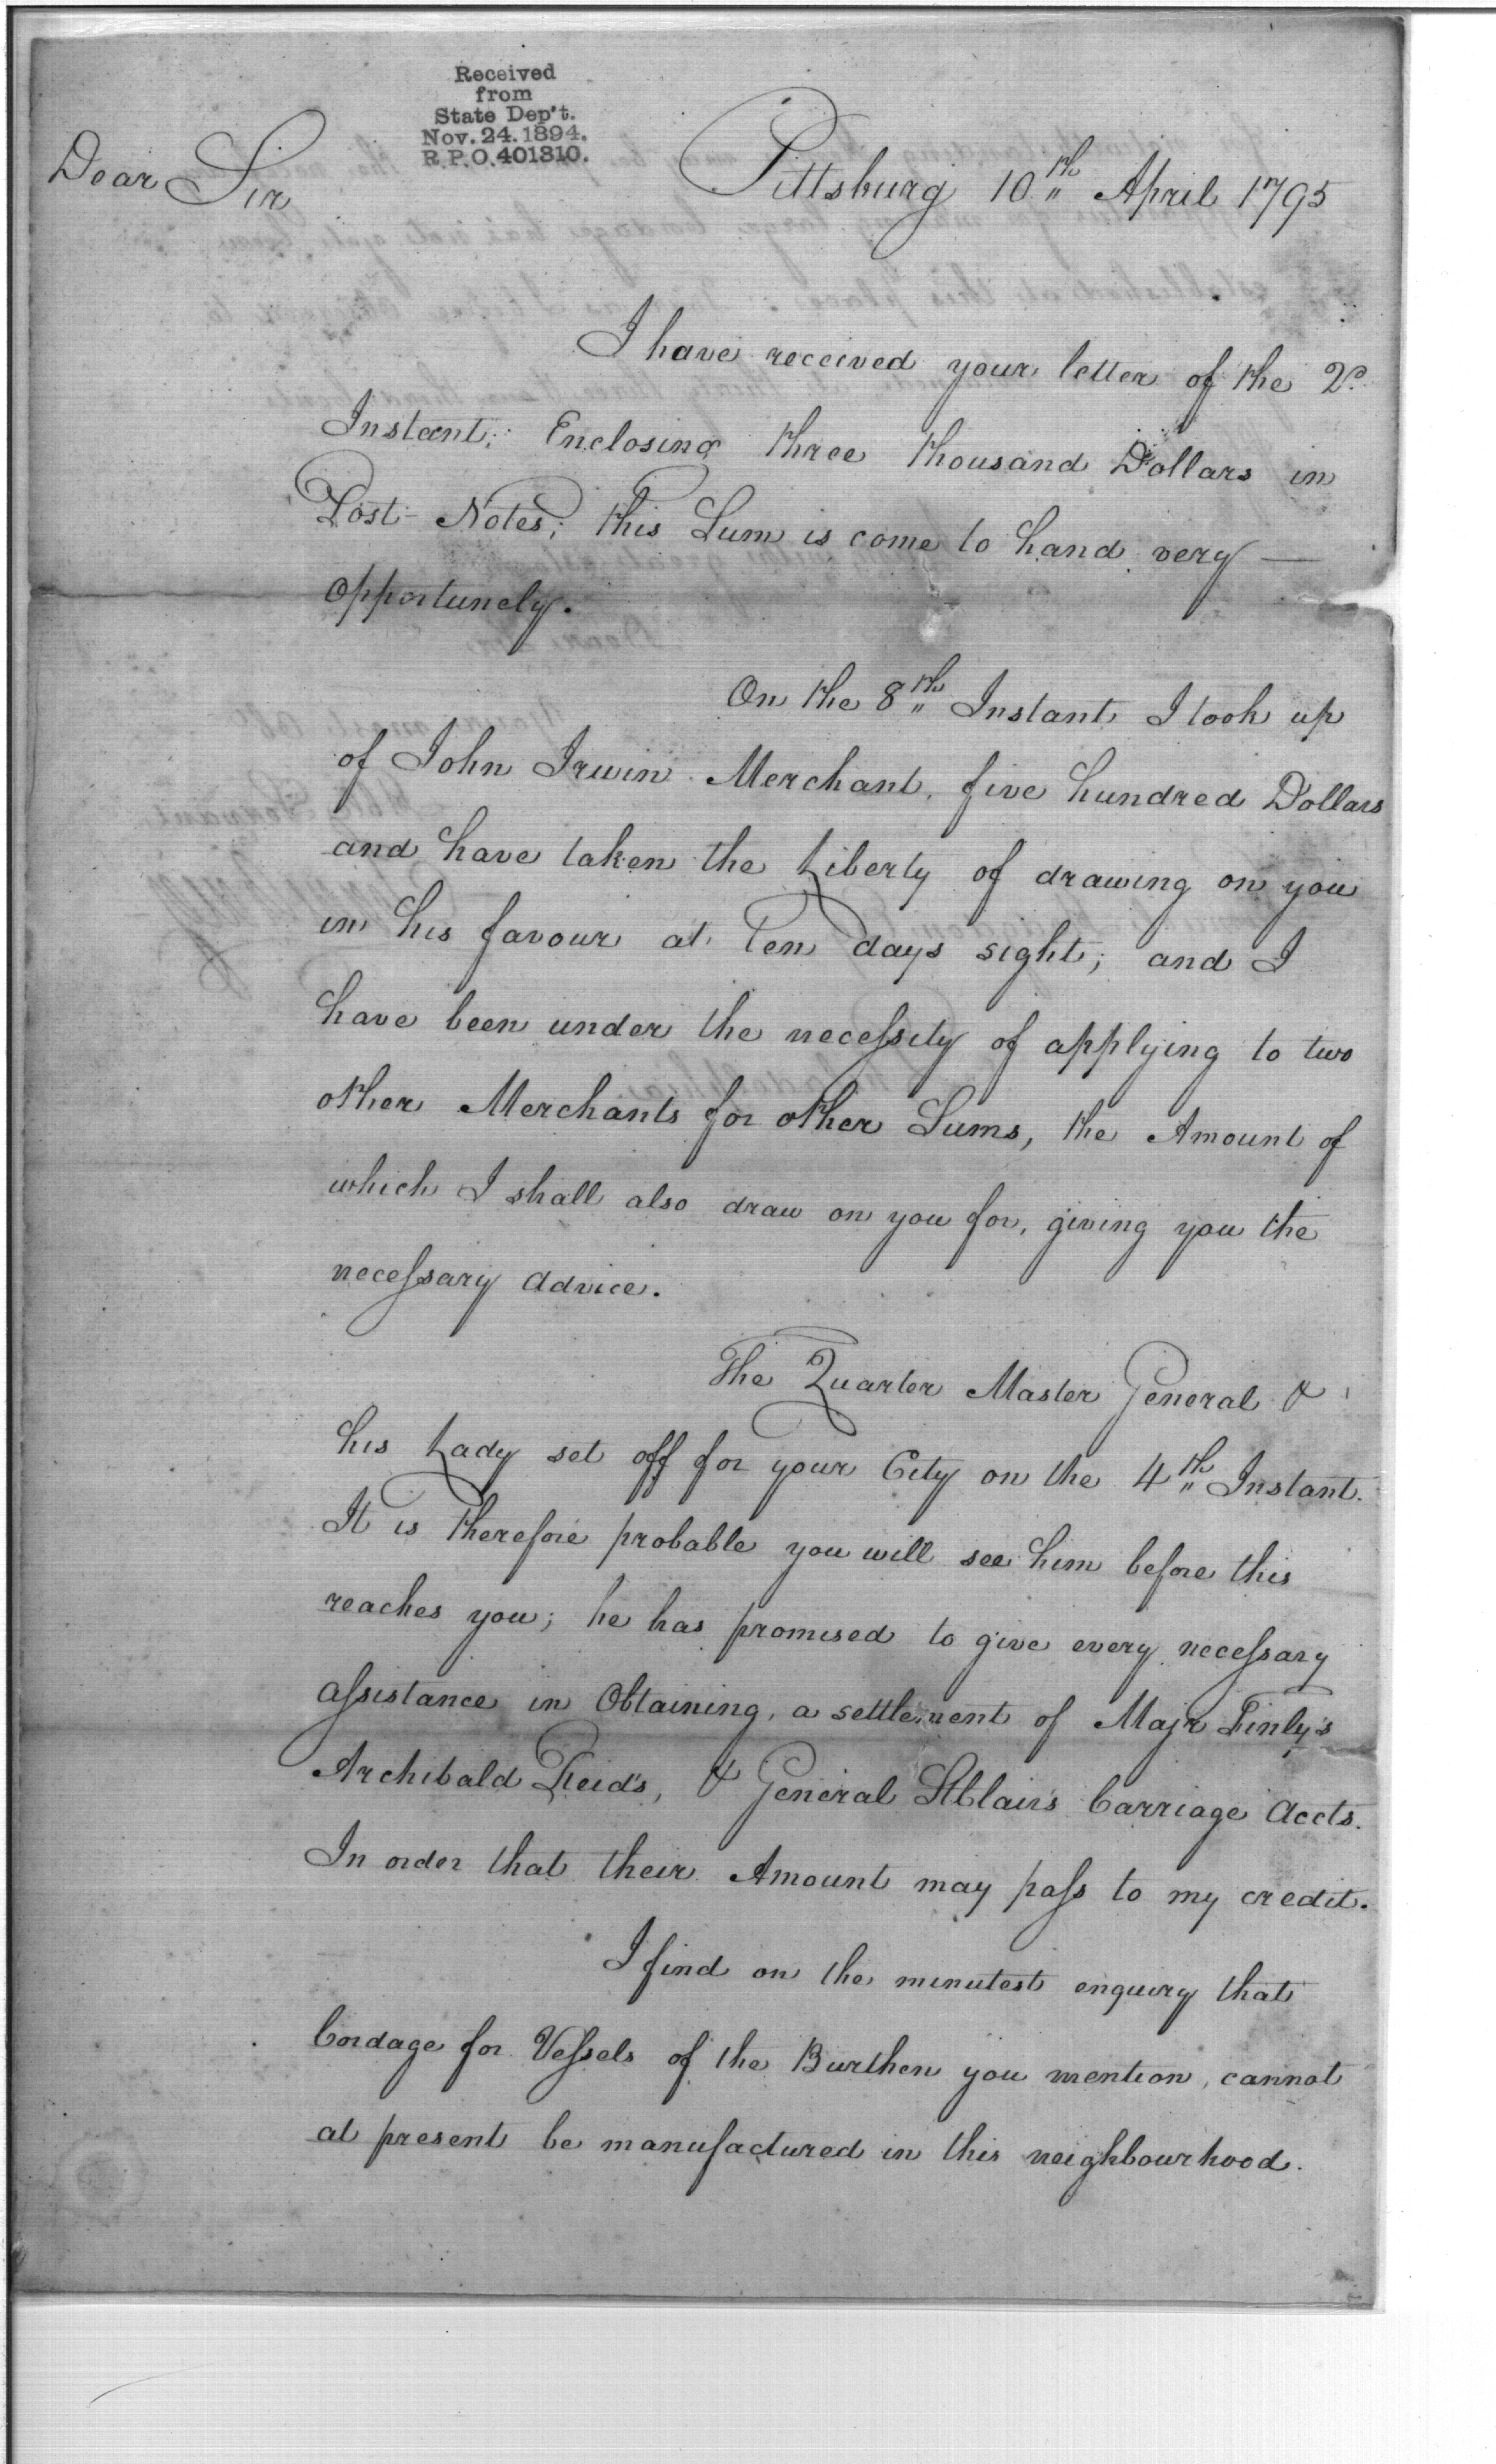 Received
from
State Dep't.
Nov. 24. 1894.
R.P.O. 401310.
Dear Sir
Pittsburg 10th April 1795
I have received your letter of the 2d
Instant; Enclosing three thousand Dollars in
Post-Notes; this Sum is come to hand very —
opportunely.
On the 8th Instant I took up
of John Irwin Merchant, five hundred Dollars
and have taken the Liberty of drawing on you
in his favour at Ten days sight; and I
have been under the necessity of applying to two
other Merchants for other Sums, the Amount of
which I shall also draw on you for, giving you the
necessary advice.
The Quarter Master General &
his Lady set off for your City on the 4th Instant.
It is therefore probable you will see him before this
reaches you; he has promised to give every necessary
assistance in Obtaining, a settlement of Majr Finly's
Archibald Reid's, & General StClair's Carriage Accts.
In order that their Amount may pass to my credit.
I find on the minutest enquiry that
Cordage for Vessels of the Burthen you mention, cannot
at present be manufactured in this neighbourhood.